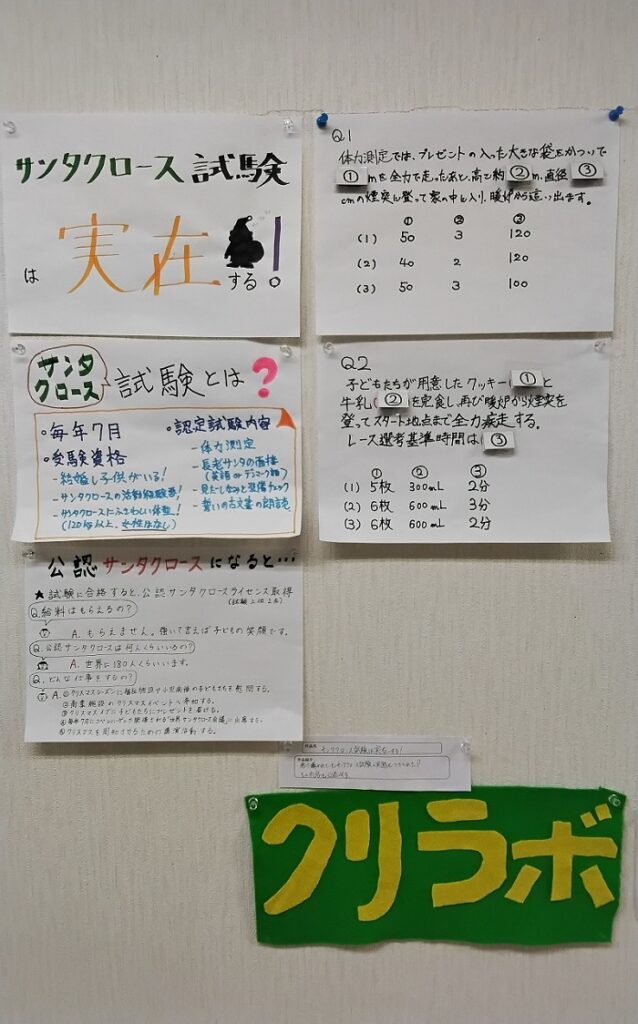 サンタクロース試験
は 実在する!
サンタクロース 試験とは?
・毎年7月
・受験資格
- 結婚し子供がいる!
- サンタクロースの活動経験者!
- サンタクロースにふさわしい体型!
(120kg以上、女性はなし)
・認定試験内容
- 体力測定
- 長老サンタの面接
(英語orデンマーク語)
- 身だしなみと装備チェック
- 誓いの古文書の朗読
公認サンタクロースになると…
★試験に合格すると、公認サンタクロースライセンス取得
Q.給料はもらえるの?
A. もらえません。強いて言えば子どもの笑顔です。
Q.公認サンタクロースは何人くらいいるの?
A. 世界に180人くらいいます。
Q. どんな仕事をするの?
A. ①クリスマスシーズンに福祉施設や小児病棟の子どもたちを慰問する。
②商業施設のクリスマスイベントへ参加する。
③クリスマスイブに子どもたちにプレゼントを届ける。
④毎年7月にコペンハーゲンで開催される「世界サンタクロース会議」に出席する。
⑤クリスマスを周知させるための講演活動する。
Q1
体力測定では、プレゼントの入った大きな袋をかついで
①mを全力で走ったあと、高さ約②m、直径③
cmの煙突に登って家の中に入り、暖炉から這い出ます。
① ② ③
(1) 50 3 120
(2) 40 2 120
(3) 50 3 100
Q2
子どもたちが用意したクッキー(①)と
牛乳(②)を完食し、再び暖炉から煙突を
登ってスタート地点まで全力疾走する。
レース選考基準時間は③
① ② ③
(1) 5枚 300mL 2分
(2) 6枚 600mL 3分
(3) 6枚 600mL 2分
サンタクロース試験は実在する!
クリラボ